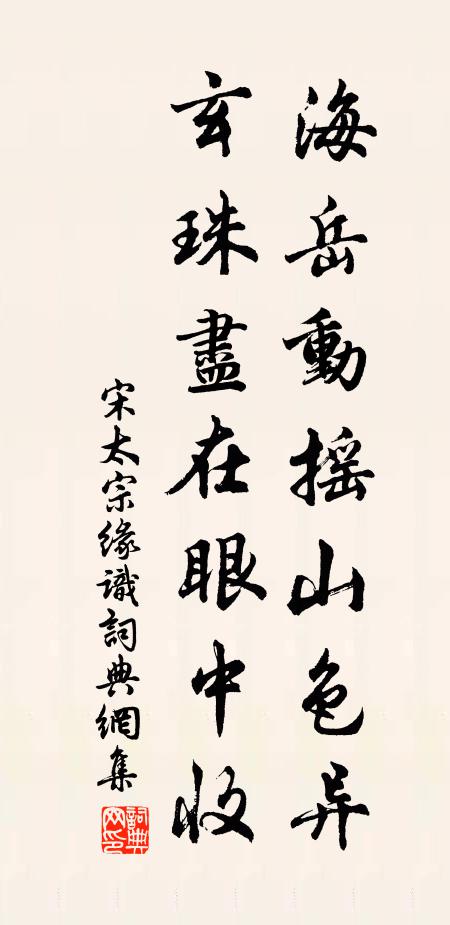 海岳動搖山色异
玄珠盡在眼中收
宋太宗緣識詞典網集
詞典網印